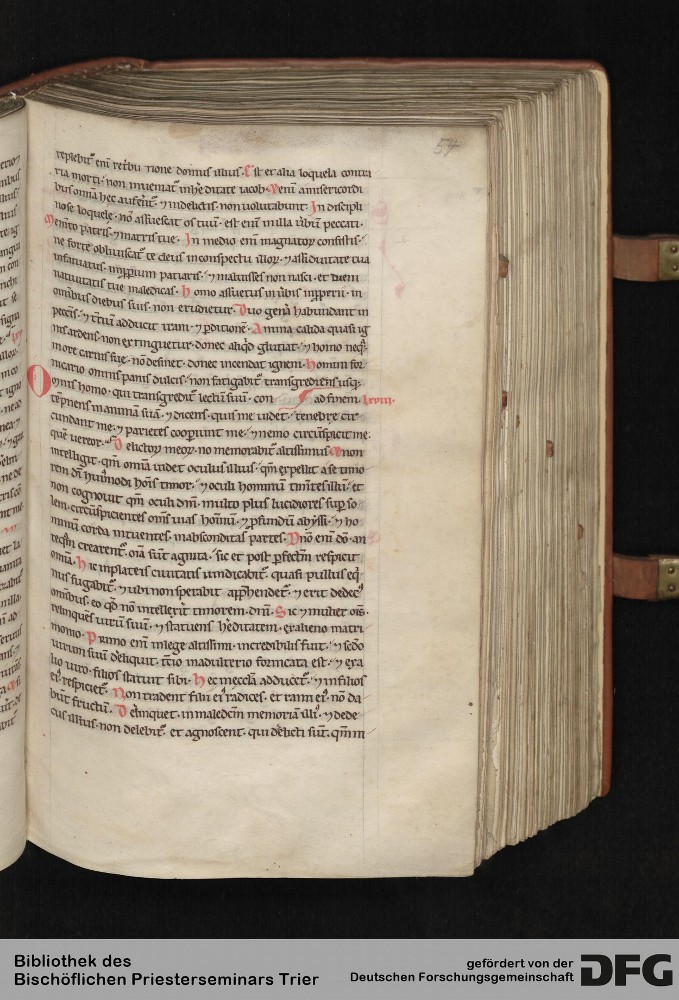 54
replebit᷑ eni᷑ ret͛bu tione domus illius. Est et alia loquela contra
ria morti. non inueniat᷑ in h͛editate iacob. Et eni᷑ a misericordi
bus omnia hec auferent᷑. ⁊ in delictis non uolutabunt᷑. In discipli
nose loquele. nō assuescat os tuum. est eni᷑ in illa u͛bum peccati.
Memēto patris ⁊ matris tue. In medio eni᷑ magnatoꝝ consistis.
ne forte obliuiscat᷑ te deus in conspectu illoꝝ. ⁊ assiduitate tua
infatuatus. inꝓꝑium patiaris. ⁊ maluisses non nasci. et diem
natiuitatis tue maledicas. Homo assuetus in u͛bis inꝓꝑerii. in
omnibus diebus suis. non erudietur. Duo gen͛a habundant in
pecc̄is. ⁊ t͛tium adducit iram. ⁊ ꝑditionē. Anima calida quasi ig
nis ardens. non extinguetur. donec aliqd̄ glutiat. ⁊ homo neqͣ.
in ore carnis sue. nō desinet. donec incendat ignem. Homini for
nicario omnis panis dulcis. non fatigabit᷑ transgrediens usqͣ.
ad finem. LXVIII.
Omnis homo. qui transgredit᷑ lectum suū. con
tēpnens in animam suā. ⁊ dicens. quis me uidet. tenebre cir
cundant me. ⁊ parietes cooꝑiunt me. ⁊ nemo circūspicit me.
quē uereor. Delictoꝝ meoꝝ. nō memorabit᷑ altissimus. Et non
intelligit. qm̄ omnia uidet oculus illius. qm̄ expellit a se timo
rem dī hui͛modi hoīs timor. ⁊ oculi hominū tim͛etes illū. et
non cognouit qm̄ oculi dn̄i. multo plus lucidiores suꝑ so
lem. circūspicientes om̄s uias hoīnum. ⁊ ꝓfundū abyssi. ⁊ ho
minū corda intuentes. in absconditas partes. Dn̄o eni᷑ dō. an
teqm̄ crearent᷑. oīa sunt agnita. sic et post ꝑfectm̄ respicit
omīa. Hic in plateis ciuitatis uindicabit᷑. quasi pullus eqͥ
nus fugabit᷑. ⁊ ubi non sperabit app͛hendet᷑. ⁊ erit dedecꝰ
omnibus. eo qđ nō intellexit᷑ timorem. dn̄i. Sic ⁊ mulier om̄.
relinquēs uirū suum. ⁊ statuens h͛editatem. ex alieno matri
monio. Primo eni᷑ in lege altissimi. incredibilis fuit. ⁊ sc̄do
uirum suum d͛eliquit. t͛tio in adulterio fornicata est. ⁊ ex a
lio uiro. filios statuit sibi. Hec in eccl͛ia adducet᷑. ⁊ in filios
eiꝰ respiciet᷑. Non tradent filii eiꝰ radices. et rami eiꝰ. nō da
bunt fructum. Derelinquet. in maledictm̄ memoriā illiꝰ. ⁊ dede
cus illius. non delebit᷑. et agnoscent. qui d͛elicti sūt. qm̄ in
Bibliothek des
Bischöflichen Priesterseminars Trier
gefördert von der
Deutschen Forschungsgemeinschaft
DFG